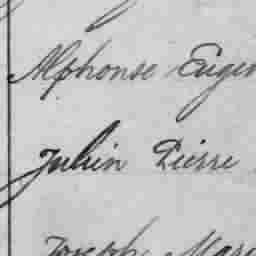 Alphonse Eugen
Julien Pierre
Joseph Mar